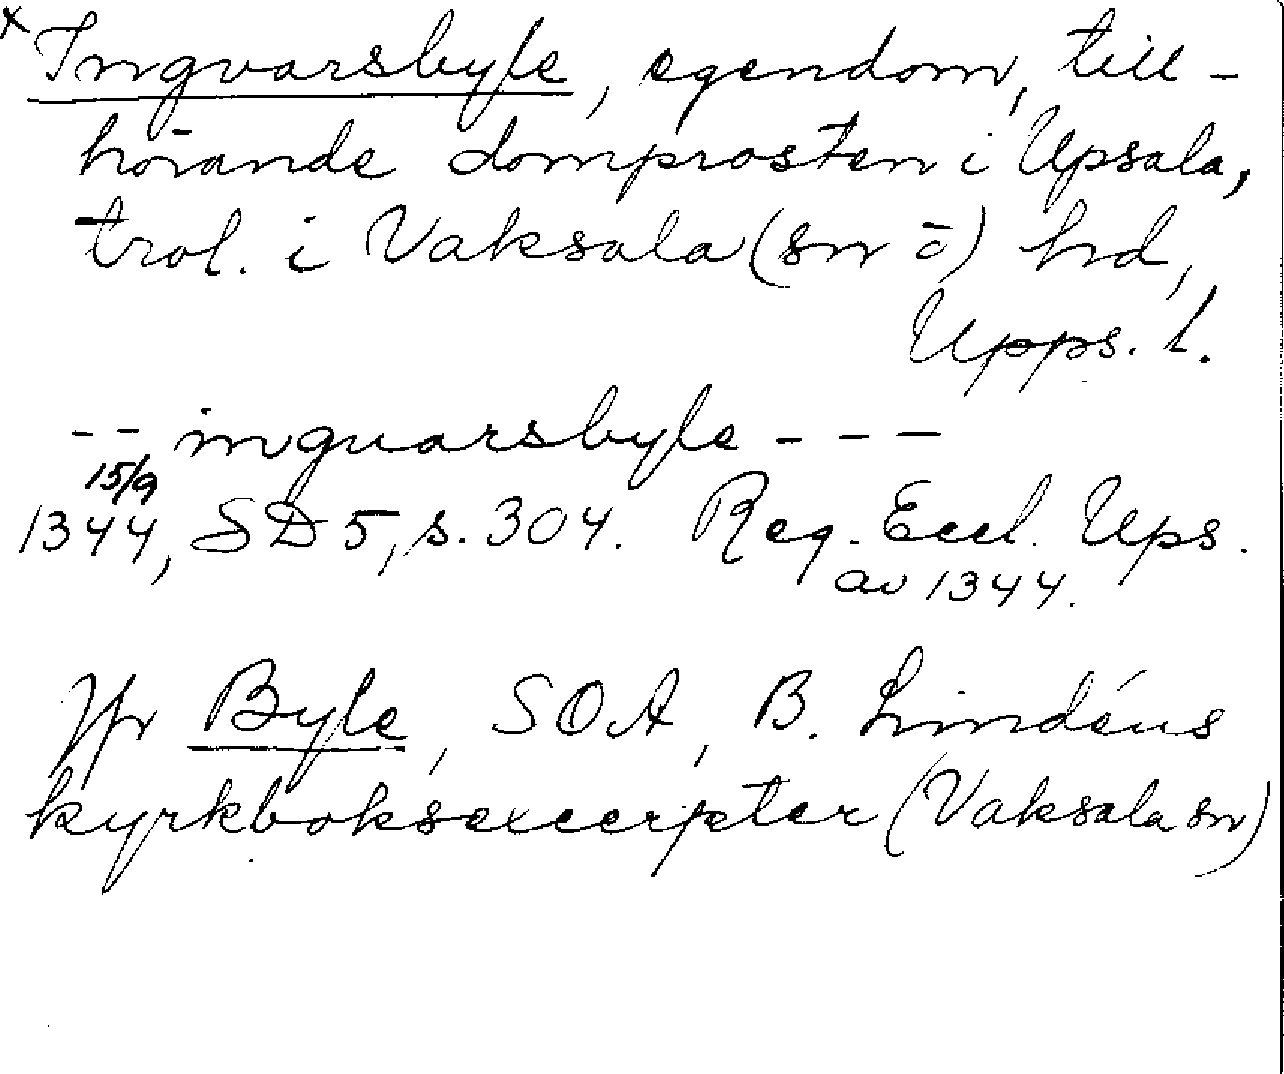 x Ingvarsbyle, egendom, till-
hörande domprosten i Upsala,
trol. i Vaksala (sn o) hd,
Upps. l.
-- inguarsbyle ---
15/9
1344, SD 5, s. 304. Reg. Eccl. Ups.
av 1344.
Jfr Byle, SOA, B. Lindéns
kyrkboksexcerpter (Vaksala sn)